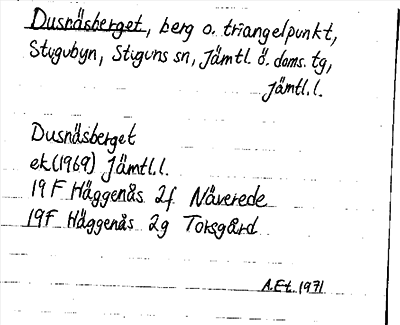 Dusnäsberget, berg o. triangelpunkt,
Stugubyn, Stiguns sn, Jämtl. ö. doms. tg,
Jämtl.l.
Dusnäsberget
ek.(1969) Jämtl.l.
19 F Häggenås 2f Näverede
19F Häggenås 2g Torsgård
A.Et. 1971